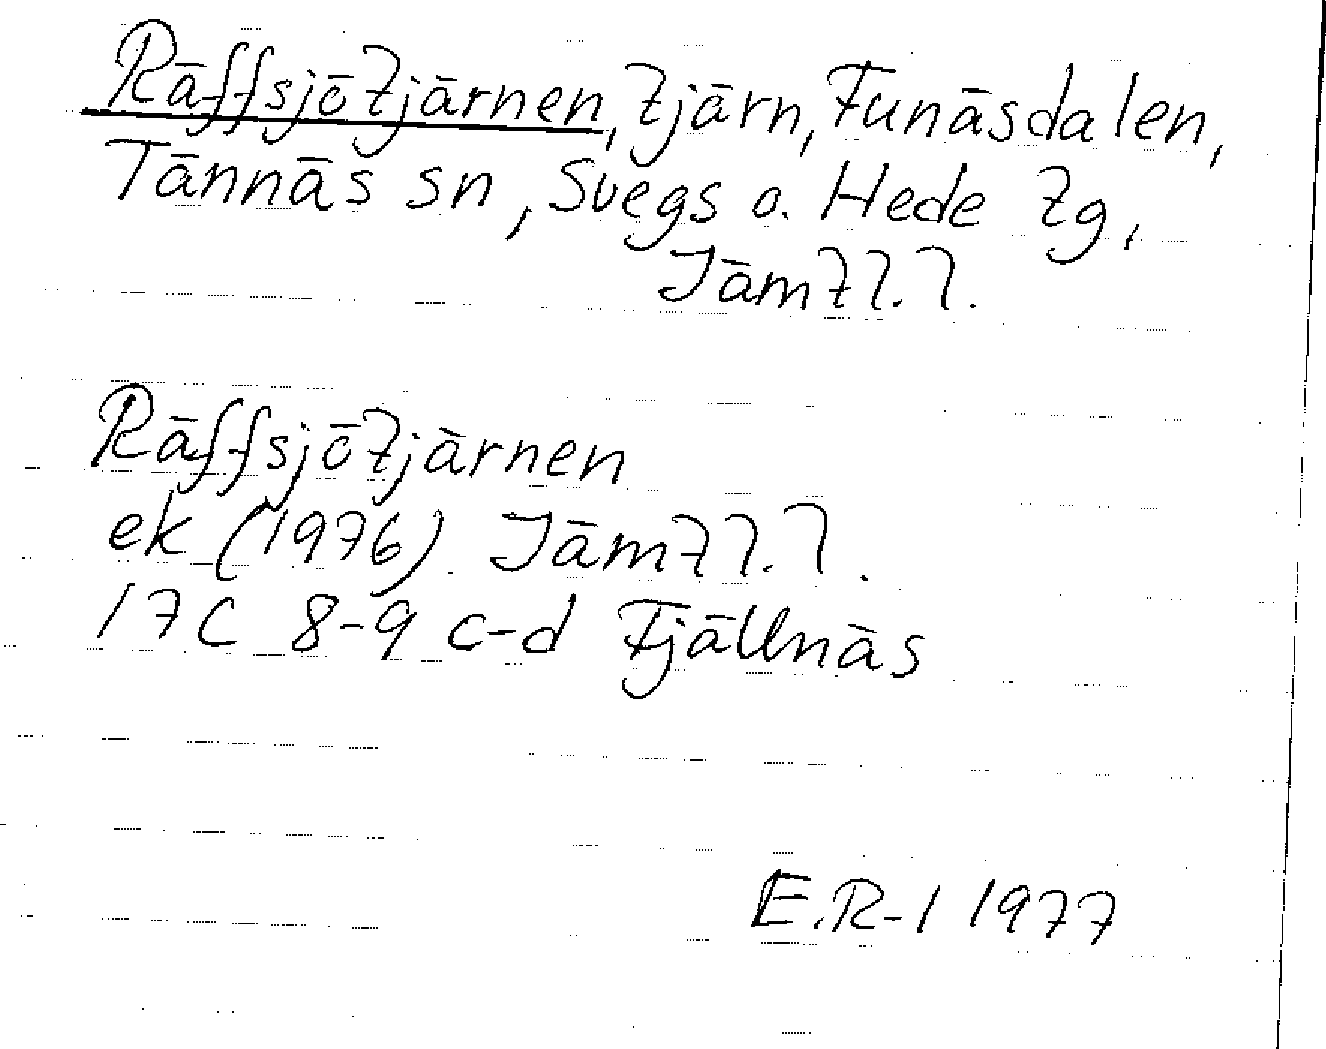 Räffsjötjärnen, tjärn, Funäsdalen,
Tännäs sn, Svegs o. Hede tg,
Jämtl. l.
Räffsjötjärnen
ek (1976) Jämtl. l.
17C 8-9 c-d Fjällnäs
E.R-l 1977